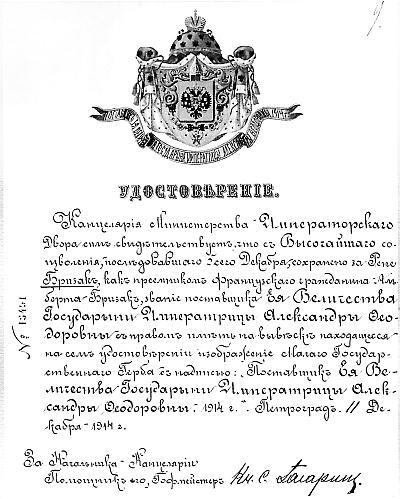 УДОСТОВѢРЕНІЕ.
Канцелярія Министерства Императорскаго
Двора симъ свидѣтельствуетъ, что съ Высочайшаго со-
изволенія, послѣдовавшаго 5сего Декабря, сохранено за Рене
Бризакъ, какъ преемникомъ Французскаго гражданина Аль-
берта Бризакъ, званіе поставщика Ея Величества
Государыни Императрицы Александры Ѳео-
доровны съ правомъ имѣть на вывѣскѣ находящееся
на семъ удостовѣреніи изображеніе Малаго Государ-
ственнаго Герба съ надписью: „Поставщикъ Ея Ве-
личества Государыни Императрицы Алек-
сандры Ѳеодоровны. 1914 г.“ Петроградъ. 11 Де-
кабря 1914 г.
№ 13451
За Начальника Канцеляріи
Помощникъ его, Гофмейстеръ Кн. С. Гагаринъ